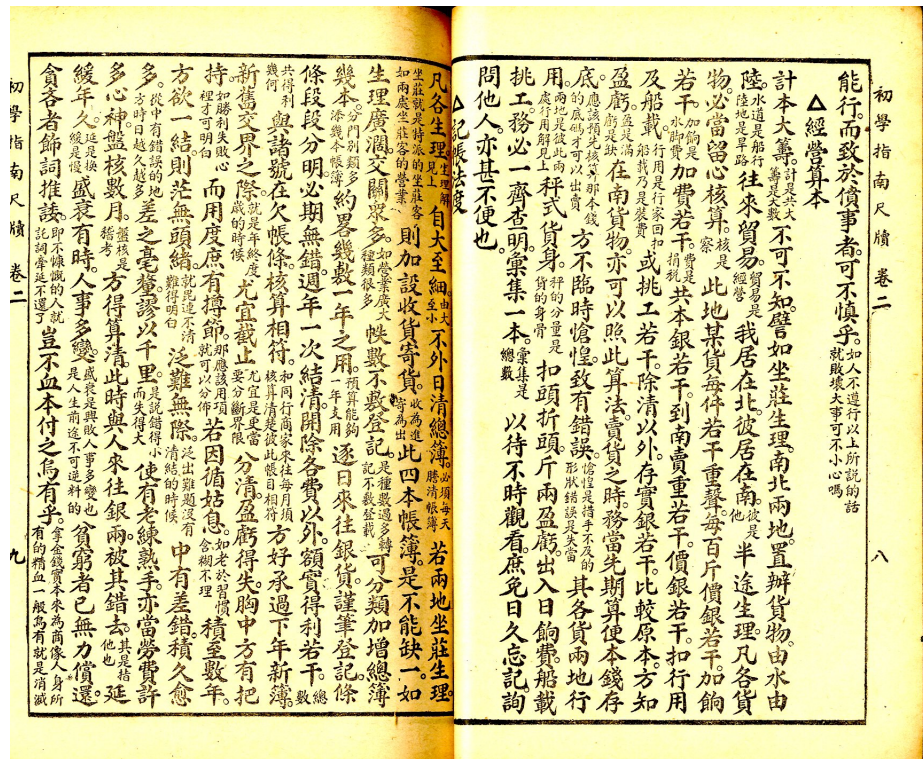 初學指南尺牘 卷二 八
能行。而致於僨事者。可不慎乎。如人不遵行以上所說的話就敗壞大事可不小心嗎
△經營算本
計本大籌。計是共大籌是大數不可不知。譬如坐莊生理。南北兩地。置辦貨物。由水由
陸。水道是船行陸地是旱路往來貿易。貿易是經營我居在北。彼居在南。彼是他半途生理。凡各貨
物。必當留心核算。核是察此地某貨每件若干重聲。每百斤價銀若干。加餉
若干。加餉是水脚費加費若干。費是捐稅共本銀若干。到南賣重若干。價銀若干。扣行用
及船載。行用是行家回扣船載乃是裝費或挑工若干。除清以外。存實銀若干。比較原本。方知
盈虧。盈是滿虧是缺在南貨物。亦可以照此算法。賣貨之時。務當先期算便本錢存
底。應該預先核算那本錢的底碼才可以出賣方不臨時愴惶。致有錯誤。愴惶是措手不及的形狀錯誤是失當其各貨兩地行
用。兩地是彼此兩處行用解見上秤式貨身。秤的分量是貨的身骨扣頭折頭。斤兩盈虧。出入日餉費船載
挑工。務必一齊查明。彙集一本。彙集是總數以待不時觀看。庶免日久忘記。詢
問他人。亦甚不便也。
△記帳法度
凡各生理。生理解見上自大至細。由大至小不外日清總簿。必須每天謄清帳簿若兩地坐莊生理。
坐莊就是特派的坐莊客如兩處坐莊客的營業則加設收貨寄貨。收為進寄為出此四本帳簿。是不能缺一。如
生理廣濶。交關衆多。如營業廣大種類很多帙數不敷登記。是種數過多轉記不敷登載可分類加增總簿
幾本。分門別類添幾本帳簿約畧幾敷一年之用。預算能夠一年支用逐日來往銀貨。謹筆登記。條
條段段分明。必期無錯。週年一次結清。開除各費以外。額實得利若干。總數
共得利幾何與諸號在欠帳條。核算相符。和同行商家來往每月須核算清楚彼此帳目相符方好承過下年新簿。
新舊交界之際。就是年終度歲的時候尤宜截止。尤宜是更當要分斷界限分清。盈虧得失。胸中方有把
持。如勝利失敗心裡才可明白而用度庶有撙節。那應該用項就可以分佈若因循姑息。如老於習慣含糊不理積至數年。
方欲一結。則茫無頭緒。就昆連不清難得明白泛難無際。泛出難題沒有清結的時候中有差錯。積久愈
多。從中有錯誤的地方時日越久越多差之毫釐。謬以千里。是說錯得小而失得大使有老練熟手。亦當勞費許
多心神。盤核數月。盤核是稽考方得算清。此時與人來往銀兩。被其錯去。其是拮他也延
緩年久。延是挨緩是慢盛衰有時。人事多變。盛衰是興敗人事多變也是人生前途不可逆料的貧窮者已無力償還。
貪吝者飾詞推諉。即不慷慨的人就託詞牽延不還了豈不血本付之烏有乎。拿金錢實本來為商像人身所有的精血一般烏有就是消滅
初學指南尺牘 卷二 九